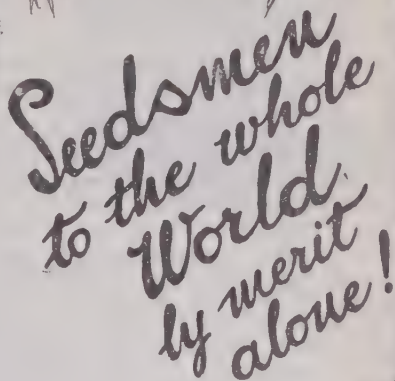 Seedsmen
to the whole
World.
by merit
alone!